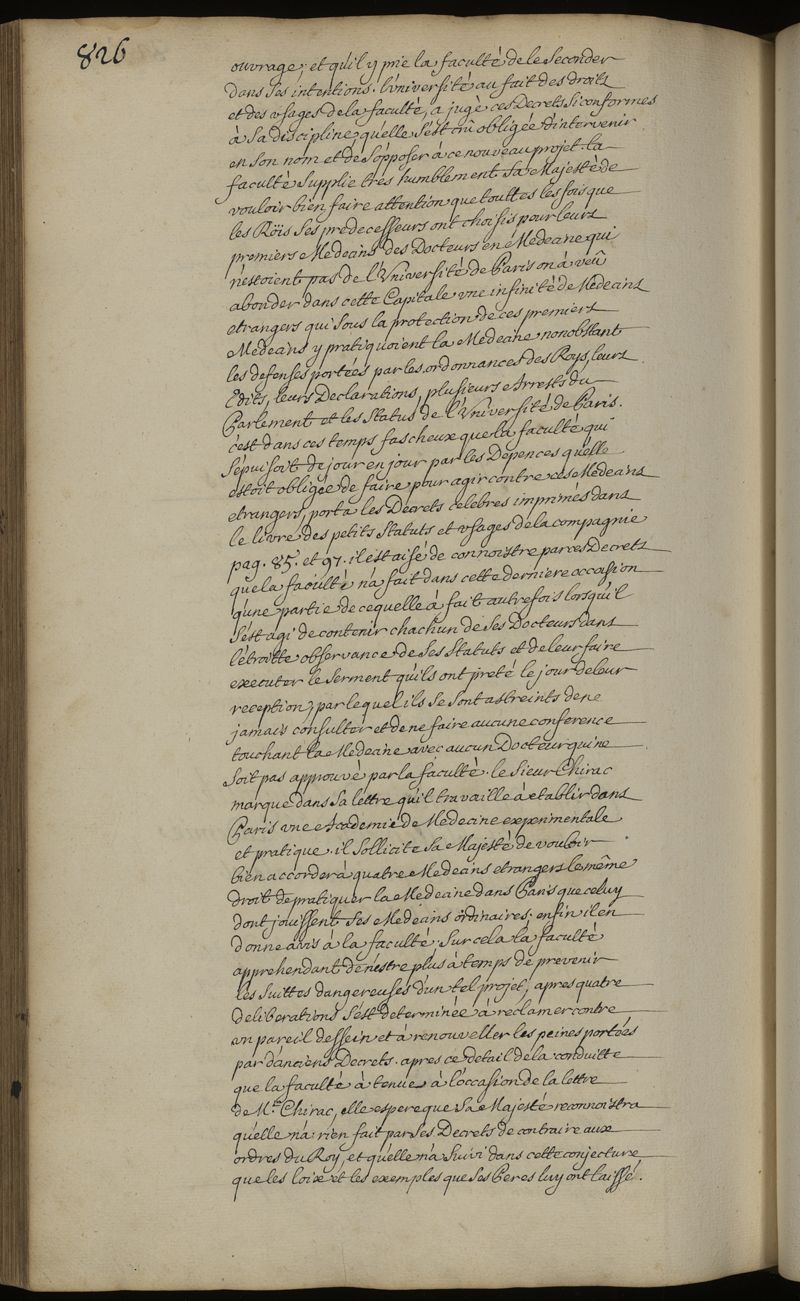 826
ouvrage; et qu'il y prie la faculté de le Seconder
dans ses intentions. l'université au fait des droits
et des usages de la faculté, a jugé ces Decrets Si conformes
à Sa discipline, qu'elle S'est crû obligée d'intervenir
en son nom et de S'opposer à ce nouveau projet. la
faculté Supplie tres humblement Sa Majesté de
vouloir bien faire attention que touttes les fois que
les Rois Ses predecesseurs ont choisis pour leurs
premiers Medecins des Docteurs en Medecine qui
n'estoient pas de l'Université de Paris on à veû
abonder dans cette Capitale une infinité de Medecins
etrangers qui Sous la protection de ces premiers
Medecins y pratiquoient la Medecine nonobstant
les defenses portées par les ordonnances des Roys, leurs
Edits, leurs Declarations, plusieurs Arrests du
Parlement et les Status de l'Université de Paris.
c'est dans ces temps fascheux que la faculté qui
S'epuisoit de jour en jour par les Dépences qu'elle
estoit obligée de faire pour agir contre ces Medecins
etrangers, porta les Decrets celebres imprimés dans
le livre des petits Statuts et usages de la compagnie
pag. 85. et 97. il est aisé de connoistre par ces Decrets
que la faculté n'a fait dans cette derniere occasion
qu'une partie de ce quelle à fait autrefois lorsqu'il
S'est agi de contenir chachun de Ses Docteurs dans
l'étroitte observance de Ses Statuts et de leur faire
executer le Serment qu'ils ont preté le jour de leur
reception, par lequel ils Se Sont astreints de ne
jamais consulter et de ne faire aucune conference
touchant la Medecine avec aucun Docteur qui ne
Soit pas approuvé par la faculté. le Sieur Chirac
marque dans Sa lettre qu'il travaille à etablir dans
Paris une Academie de Medecine experimentale
et pratique. il Sollicite Sa Majesté de vouloir
bien accorder à quatre Medecins etrangers le même
droit de pratiquer la Medecine dans Paris que celuy
dont jouissent Ses Medecins ordinaires; enfin il en
donne avis à la faculté. Sur cela la faculté
apprehendant de n'estre plus à temps de prevenir
les Suittes dangereuses d'un tel projet, apres quatre
deliberations S'est determinée à réclamer contre
un pareil dessein et à renouveller les peines portées
par d'anciens Decrets. apres ce detail de la conduitte
que la faculté à tenue à l'occasion de la lettre
de Mr. Chirac, elle espere que Sa Majesté reconnoistra
qu'elle n'a rien fait par Ses Decrets de contraire aux
ordres du Roy, et qu'elle n'a Suivi dans cette conjecture
que les loix et les exemples que Ses Peres luy ont laissé.